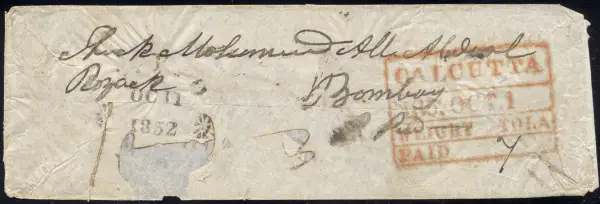 Sheik Mohumud Alli Abdool
Rozack
Bombay
Pd
OCT 1
1852
CALCUTTA
OCT. 1
WEIGHT TOLA
PAID